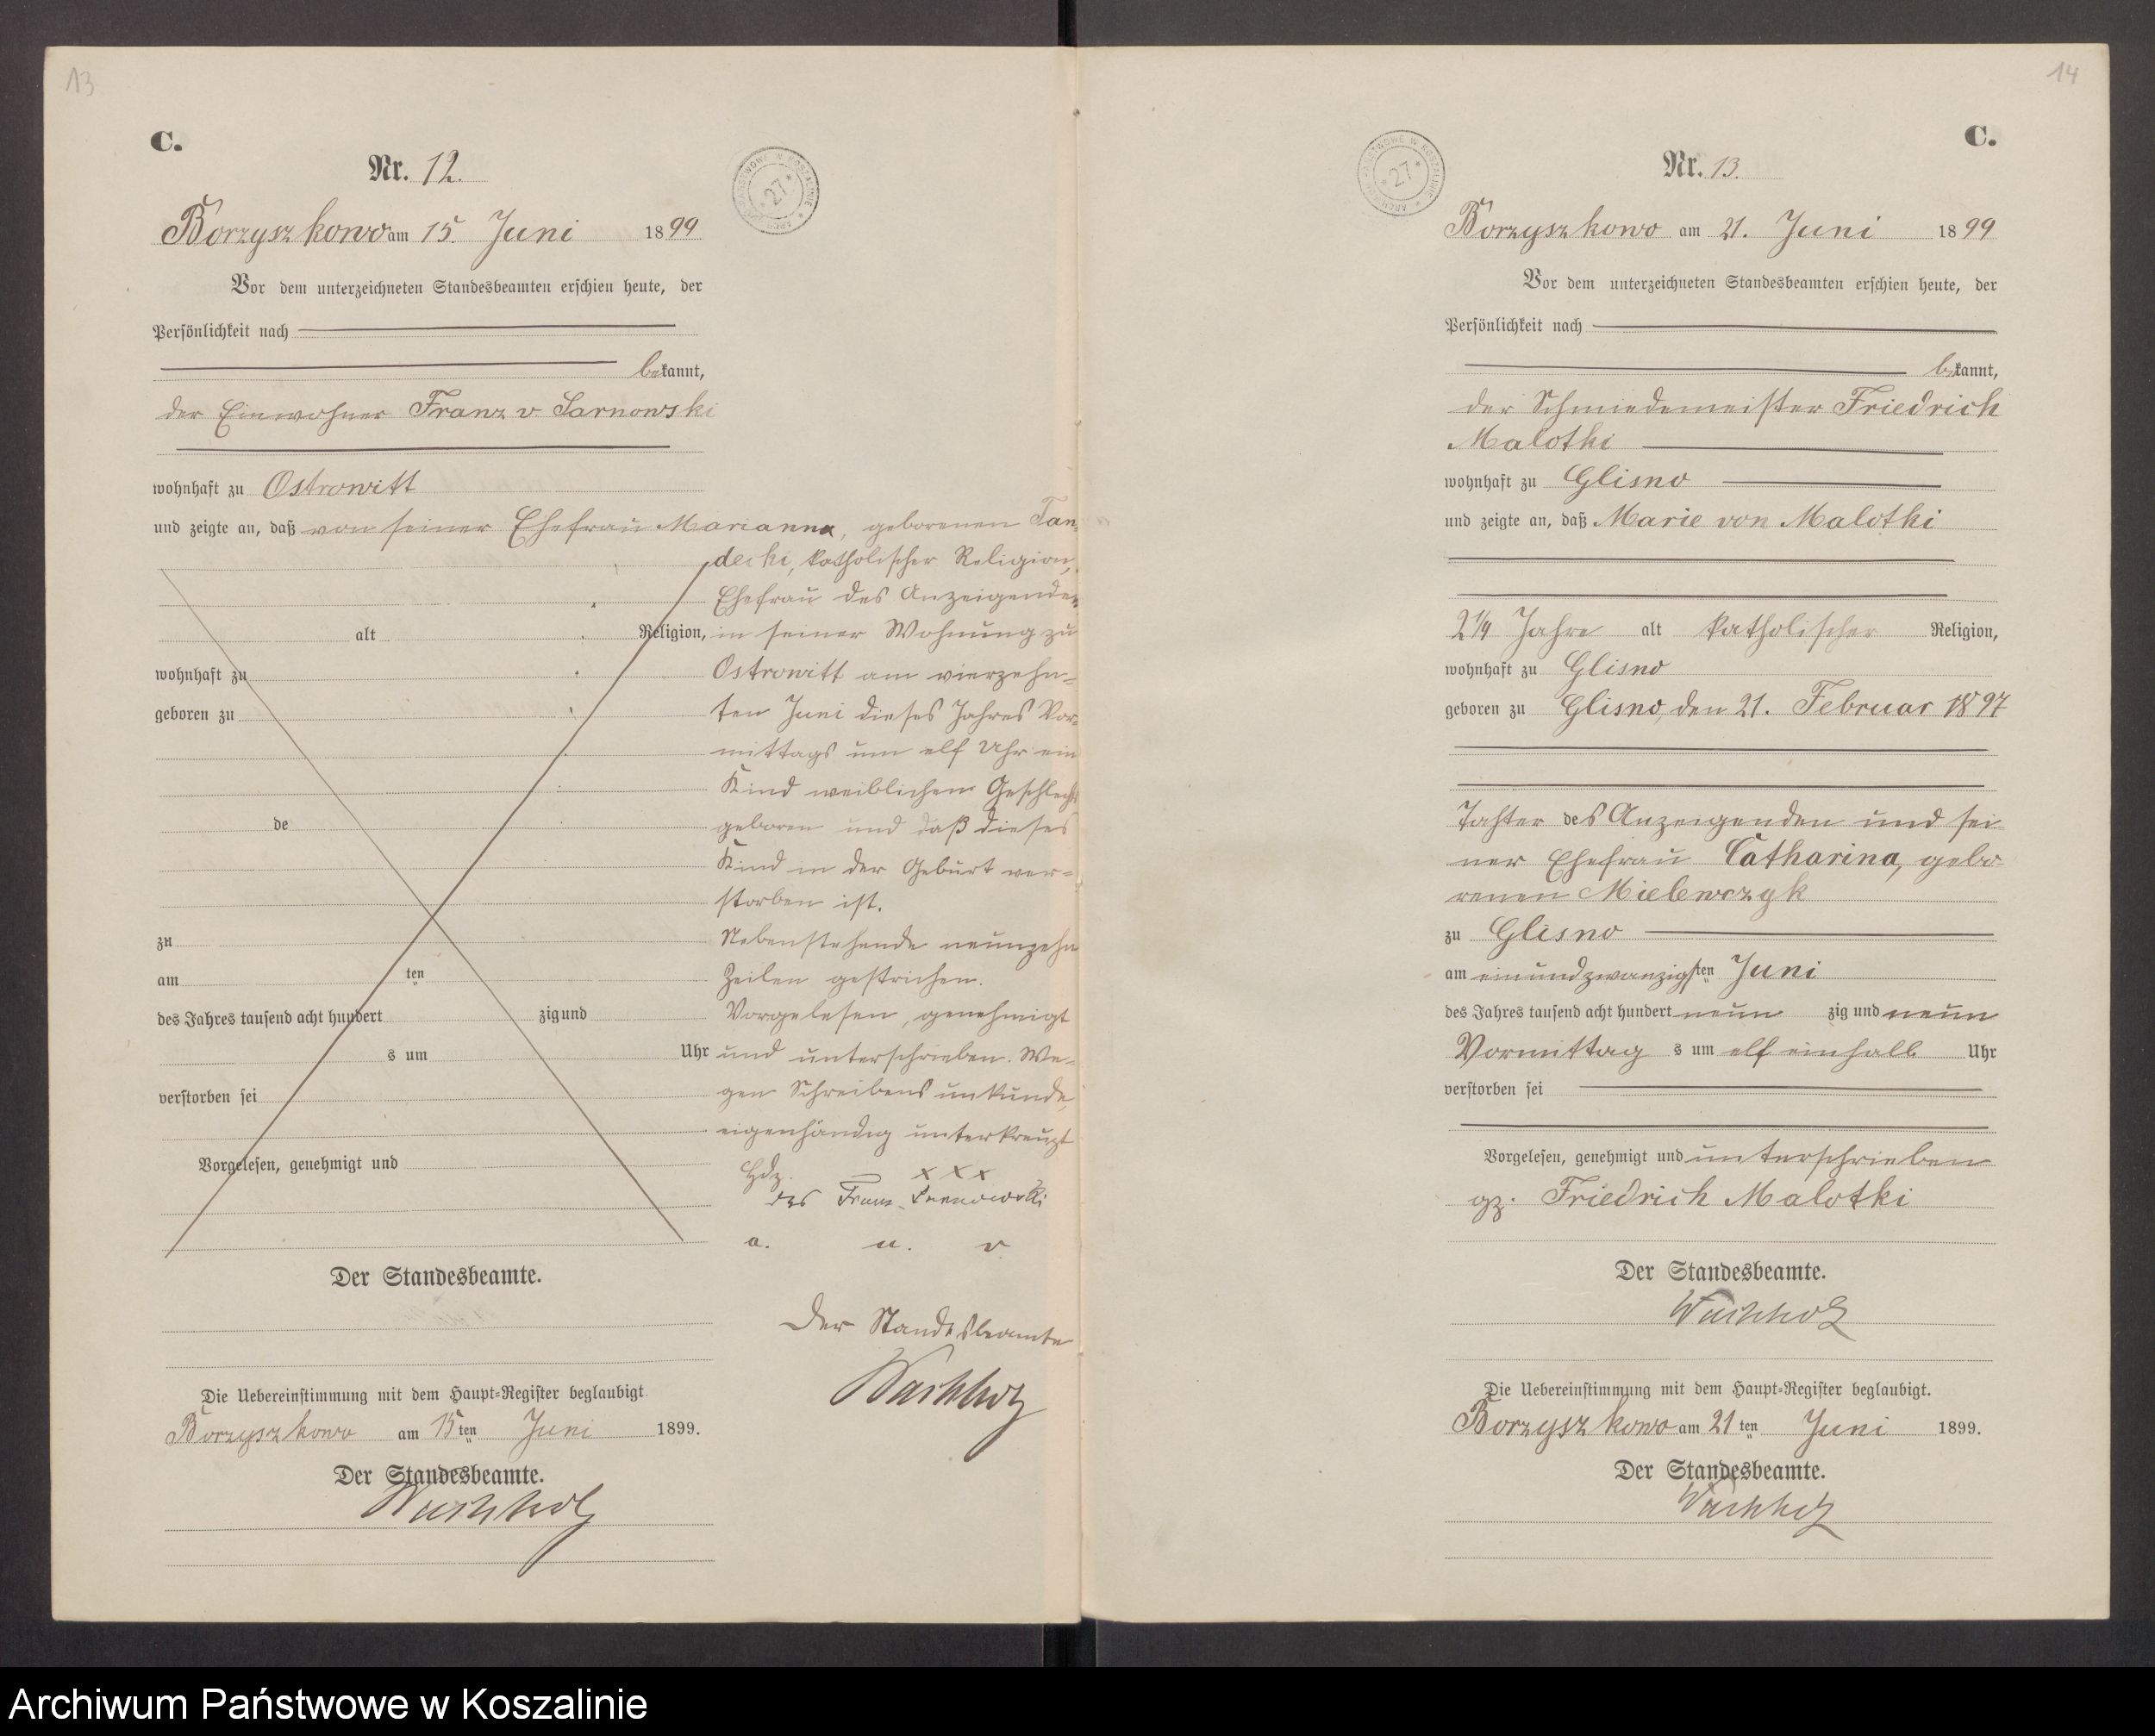 13
C.
Nr. 12.
ARCHIWUM PAŃSTWOWE W KOSZALINIE * 27 *
Borzyszkowo am 15. Juni 1899
Vor dem unterzeichneten Standesbeamten erschien heute, der
Persönlichkeit nach
bekannt,
der Einwohner Franz v Sarnowski
wohnhaft zu Ostrowitt
und zeigte an, daß von seiner Ehefrau Marianna, geborenen Tan-
decki, katholischer Religion,
Ehefrau des Anzeigenden
alt Religion, in seiner Wohnung zu
wohnhaft zu Ostrowitt am vierzehn-
geboren zu ten Juni dieses Jahres Vor-
mittags um elf Uhr ein
Kind weiblichen Geschlechts
de geboren und daß dieses
Kind in der Geburt ver-
storben ist.
zu Nebenstehende neunzehn
am ten Zeilen gestrichen.
des Jahres tausend acht hundert zig und Vorgelesen, genehmigt
s um Uhr und unterschrieben. We-
verstorben sei gen Schreibensunkunde,
eigenhändig unterkreuzt
Vorgelesen, genehmigt und Hdz. x x x
des Franz Sarnowski
a. u. v
Der Standesbeamte.
Der Standesbeamte
Wachholz
Die Uebereinstimmung mit dem Haupt-Register beglaubigt
Borzyszkowo am 15ten Juni 1899.
Der Standesbeamte.
Wachholz
14
C.
Nr. 13.
ARCHIWUM PAŃSTWOWE W KOSZALINIE * 27 *
Borzyszkowo am 21. Juni 1899
Vor dem unterzeichneten Standesbeamten erschien heute, der
Persönlichkeit nach
bekannt,
der Schmiedemeister Friedrich
Malotki
wohnhaft zu Glisno
und zeigte an, daß Marie von Malotki
2 1/4 Jahre alt katholischer Religion,
wohnhaft zu Glisno
geboren zu Glisno, den 21. Februar 1897
Tohter des Anzeigenden und sei-
ner Ehefrau Catharina, gebo-
renen Mielewczyk
zu Glisno
am einundzwanzigsten Juni
des Jahres tausend acht hundert neun zig und neun
Vormittag s um elf einhalb Uhr
verstorben sei
Vorgelesen, genehmigt und unterschrieben
gz. Friedrich Malotki
Der Standesbeamte.
Wachholz
Die Uebereinstimmung mit dem Haupt-Register beglaubigt.
Borzyszkowo am 21ten Juni 1899.
Der Standesbeamte.
Wachholz
Archiwum Państwowe w Koszalinie